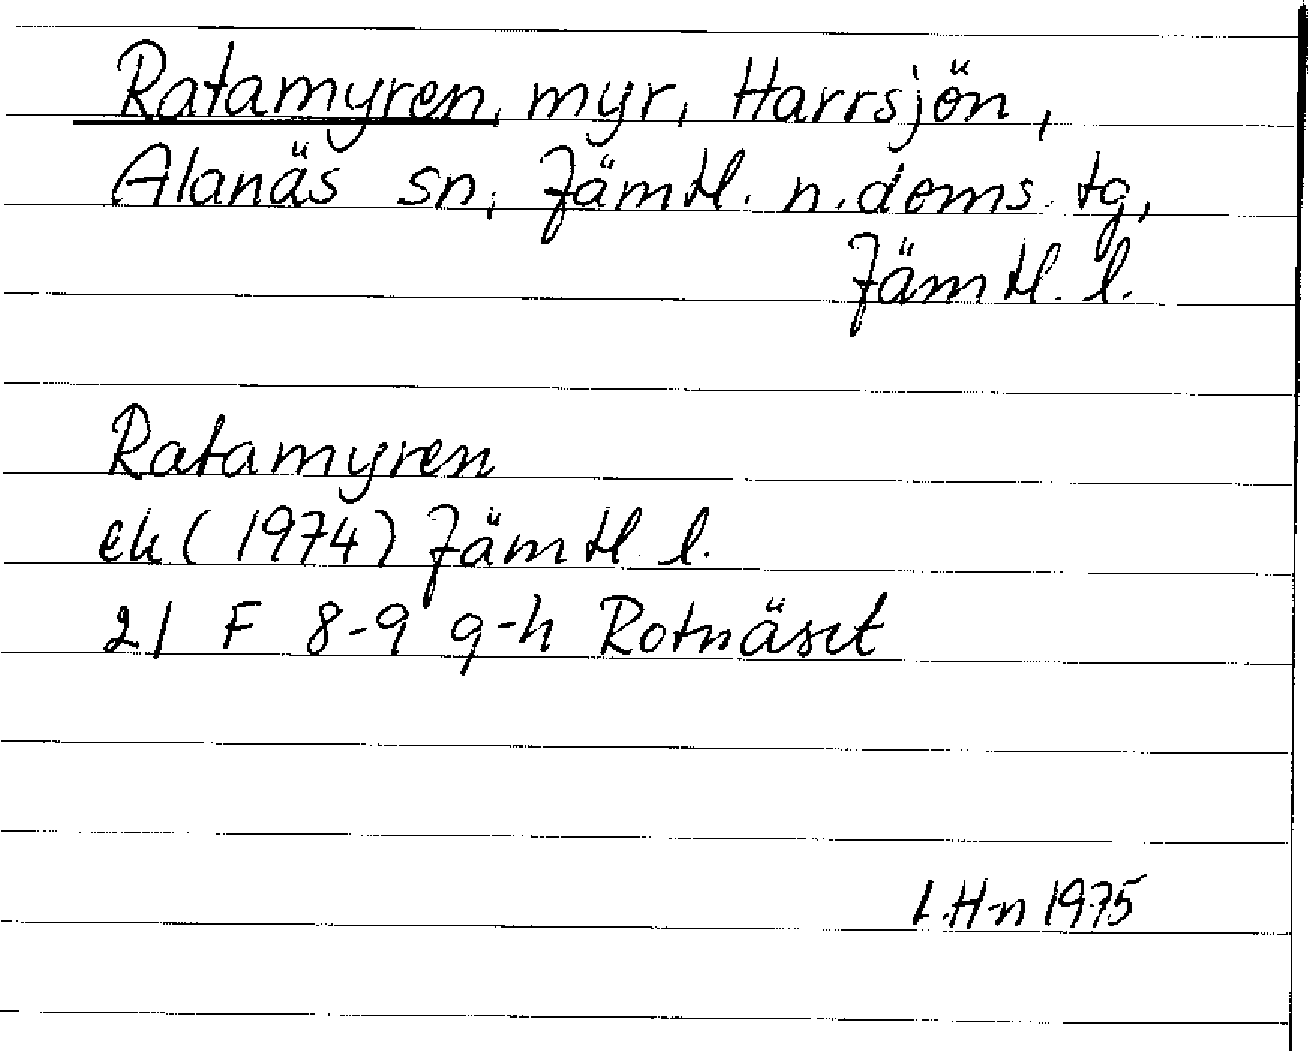 Ratamyren, myr, Harrsjön,
Alanäs sn, Jämtl. n. doms. tg,
Jämtl. l.
Ratamyren
ek (1974) Jämtl. l.
21 F 8-9 g-h Rotnäset
L.H-n 1975